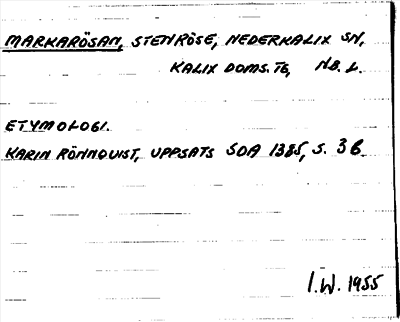 MARKARÖSAN, STENRÖSE, NEDERKALIX SN,
KALIX DOMS. TG, N.B.L.
ETYMOLOGI.
KARIN RÖNNQUIST, UPPSATS SOA 1385, S. 36
I.W. 1955